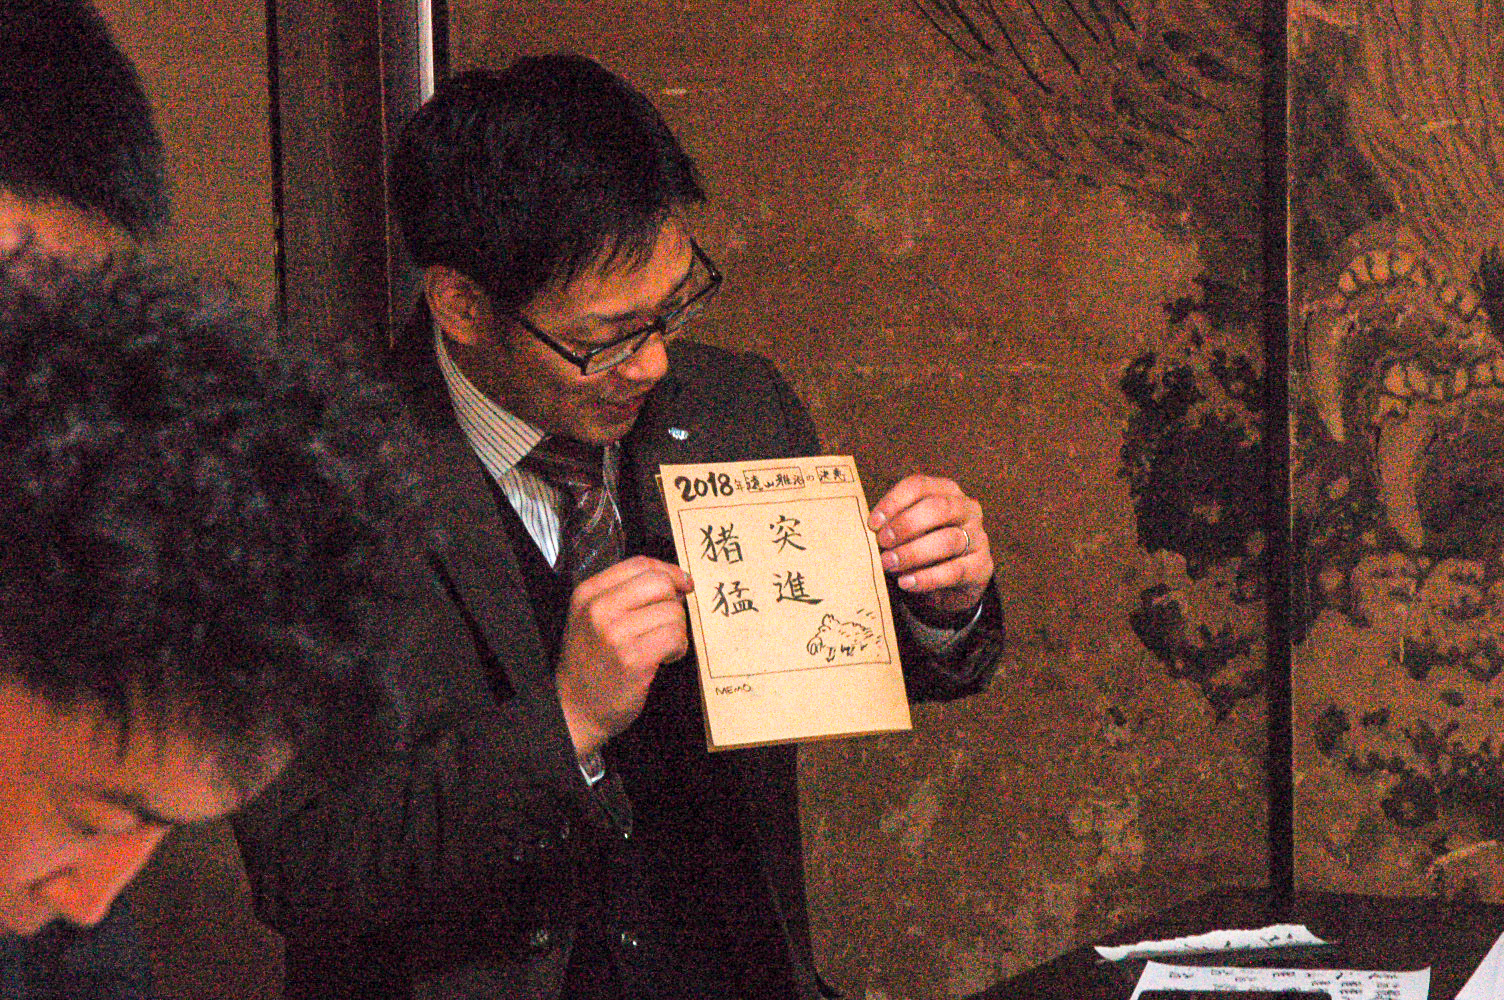 2018年遠山雅治の決意
猪突
猛進
MEMO